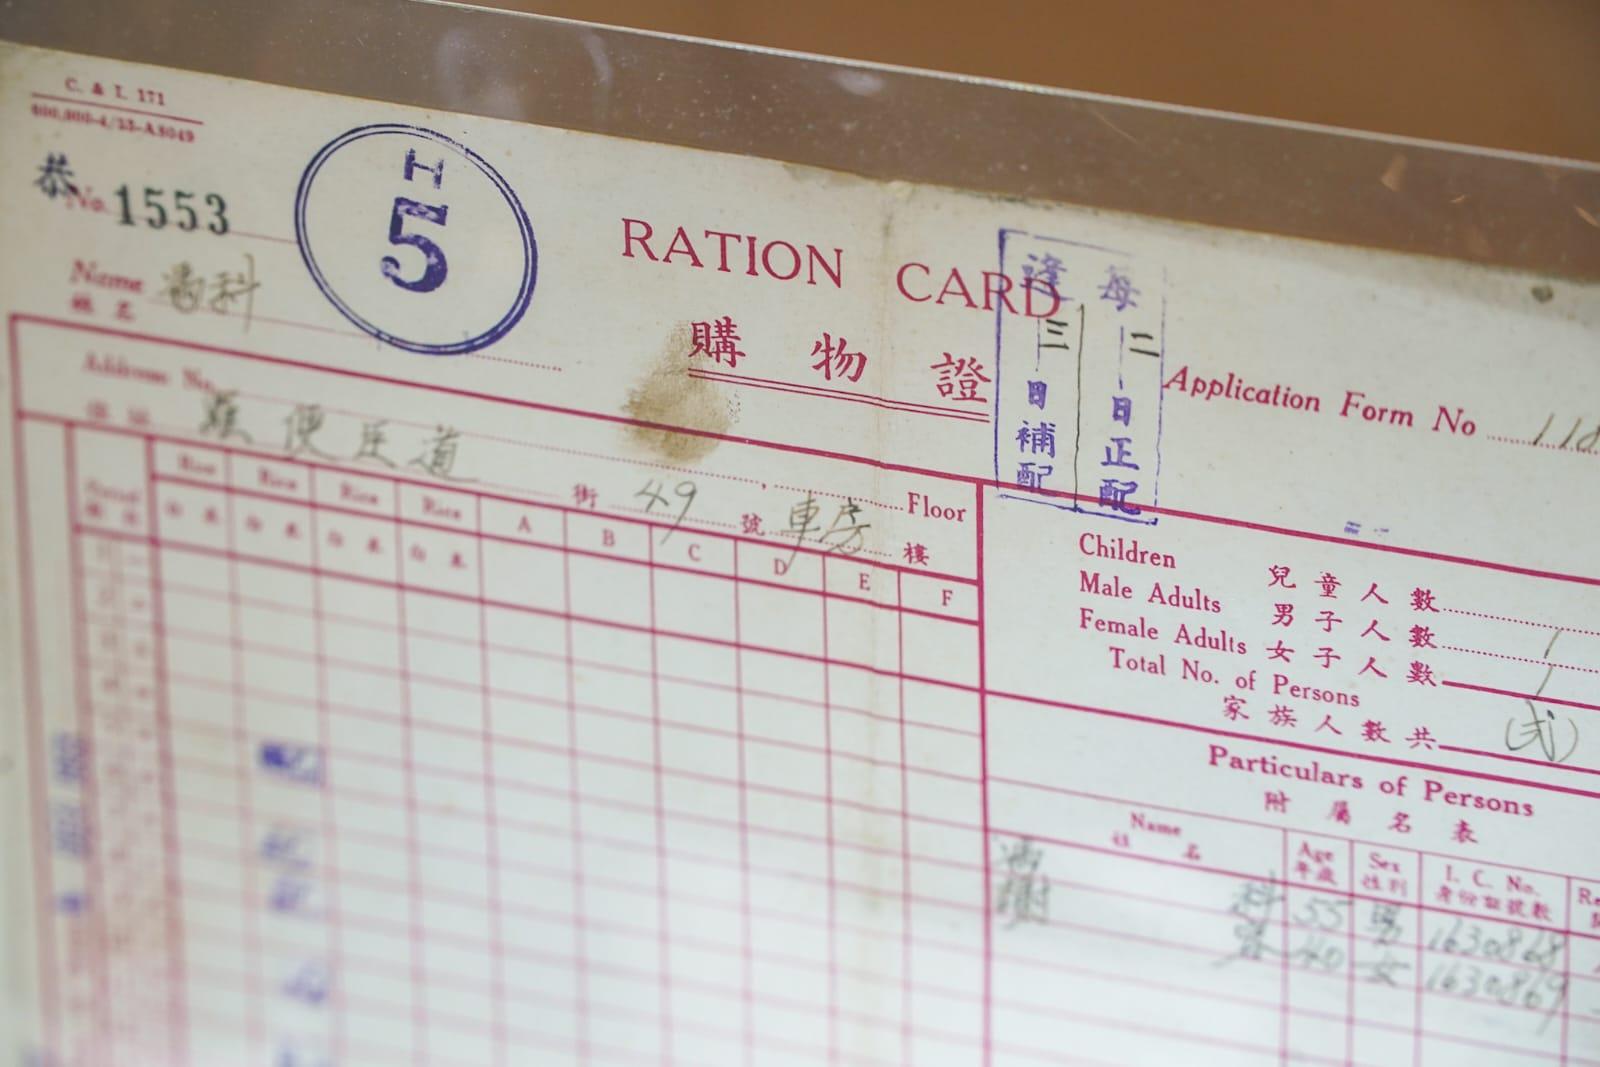 C. & I. 171
600,000-4/53-A8049
恭 No. 1553
H
5
RATION CARD
購物證
Name 馮科
姓名
每二日正配
逢三日補配
Application Form No 118
Address No.
羅便臣道 街 49 號 車房 樓
Floor
Rice Rice Rice Rice A B C D E F
白米 白米 白米 白米
Children 兒童人數
Male Adults 男子人數 1
Female Adults 女子人數 1
Total No. of Persons
家族人數共 (弍)
Particulars of Persons
附屬名表
Name Age Sex I. C. No.
姓名 年歲 性別 身份証號數
馮科 55 男 1630868
謝 40 女 1630869